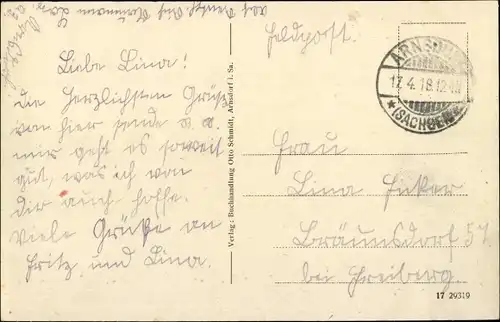 Feldpost.
ARNSDORF
17.4.18.12
*(SACHSEN)
Liebe Lina!
Die Herzlichsten Grüße
von hier sende
mir geht es soweit
gut, was ich von
dir auch hoffe.
Viele Grüße an
Fritz und Lina.
Verlag: Buchhandlung Otto Schmidt, Arnsdorf i. Sa.
Frau
Lina
Bräunsdorf 57
bei Freiberg.
17 29319